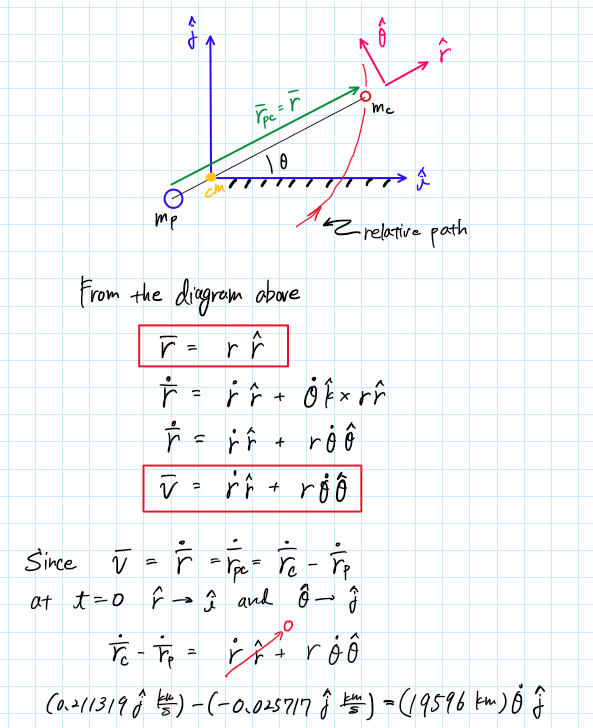 ĵ
θ̂
r̂
r̄pc = r̄
mc
θ
cm
î
mp
relative path
From the diagram above
r̄ = r r̂
r̄̇ = ṙ r̂ + θ̇ k̂ × r r̂
r̄̇ = ṙ r̂ + r θ̇ θ̂
v̄ = ṙ r̂ + r θ̇ θ̂
Since v̄ = r̄̇ = r̄̇pc = r̄̇c - r̄̇p
at t=0 r̂ → î and θ̂ → ĵ
0
r̄̇c - r̄̇p = ṙ r̂ + r θ̇ θ̂
(0.211319 ĵ km/s) - (-0.025717 ĵ km/s) = (19596 km) θ̇ ĵ